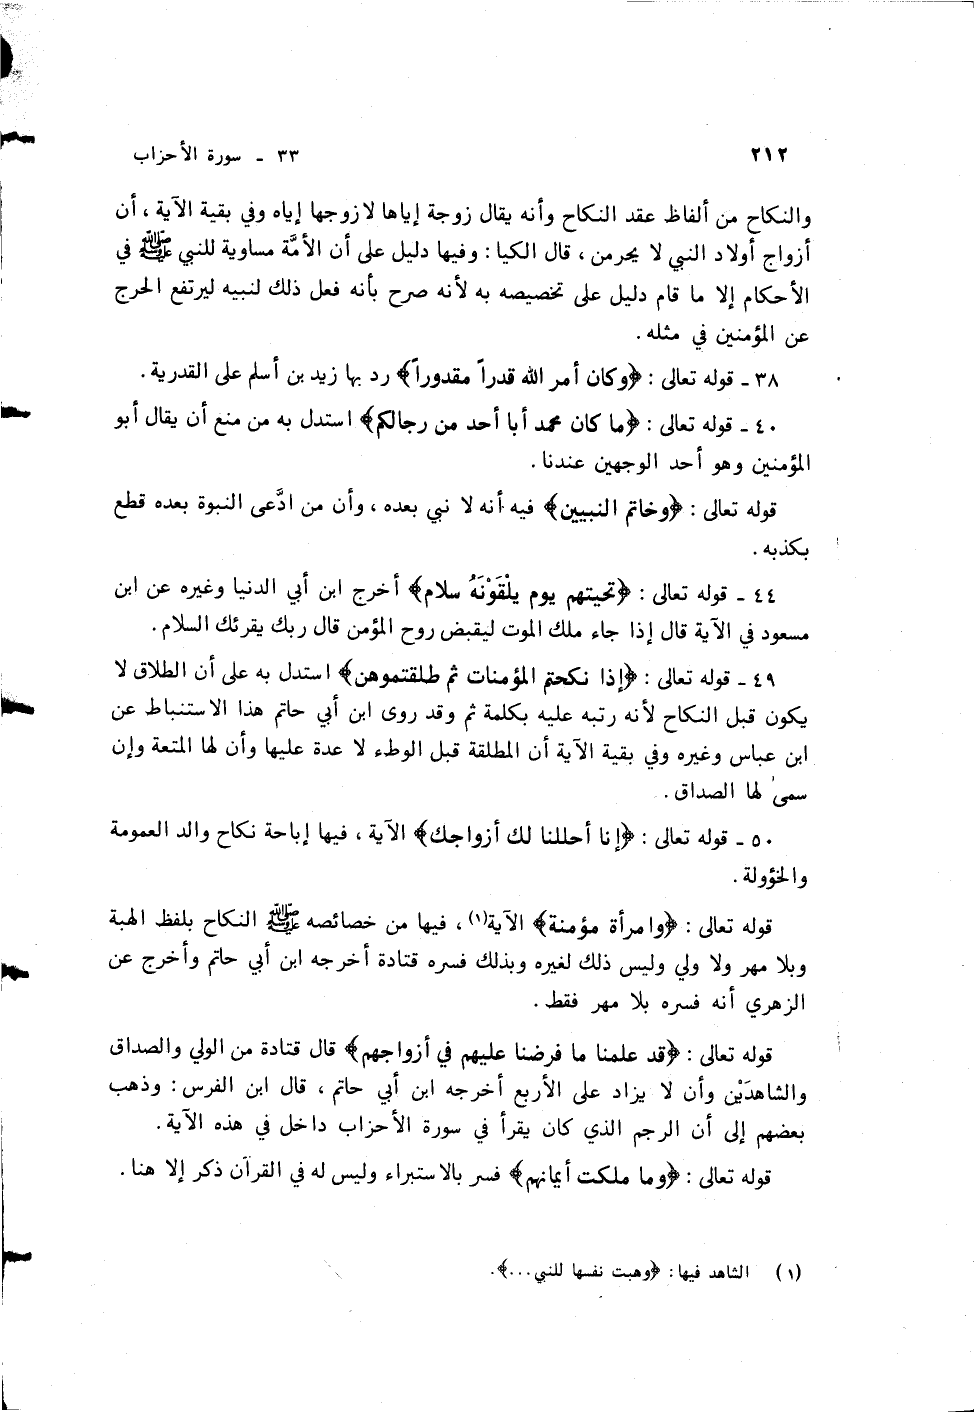 ٢١٢ ٣٣ - سورة الأحزاب
والنكاح من ألفاظ عقد النكاح وأنه يقال زوجة إياها لا زوجها إياه وفي بقية الآية ، أن
أزواج أولاد النبي لا يحرمن ، قال الكيا : وفيها دليل على أن الأمَّة مساوية للنبي ﷺ في
الأحكام إلا ما قام دليل على تخصيصه به لأنه صرح بأنه فعل ذلك لنبيه ليرتفع الحرج
عن المؤمنين في مثله .
٣٨ - قوله تعالى : ﴿وكان أمر الله قدراً مقدوراً﴾ رد بها زيد بن أسلم على القدرية .
٤٠ - قوله تعالى : ﴿ما كان محمد أبا أحد من رجالكم﴾ استدل به من منع أن يقال أبو
المؤمنين وهو أحد الوجهين عندنا .
قوله تعالى : ﴿وخاتم النبيين﴾ فيه أنه لا نبي بعده ، وأن من ادَّعى النبوة بعده قطع
بكذبه .
٤٤ - قوله تعالى : ﴿تحيتهم يوم يلْقَوْنَهُ سلام﴾ أخرج ابن أبي الدنيا وغيره عن ابن
مسعود في الآية قال إذا جاء ملك الموت ليقبض روح المؤمن قال ربك يقرئك السلام .
٤٩ - قوله تعالى : ﴿إذا نكحتم المؤمنات ثم طلقتموهن﴾ استدل به على أن الطلاق لا
يكون قبل النكاح لأنه رتبه عليه بكلمة ثم وقد روى ابن أبي حاتم هذا الاستنباط عن
ابن عباس وغيره وفي بقية الآية أن المطلقة قبل الوطء لا عدة عليها وأن لها المتعة وإن
سمى لها الصداق .
٥٠ - قوله تعالى : ﴿إنا أحللنا لك أزواجك﴾ الآية ، فيها إباحة نكاح والد العمومة
والخؤولة .
قوله تعالى : ﴿وامرأة مؤمنة﴾ الآية(١) ، فيها من خصائصه ﷺ النكاح بلفظ الهبة
وبلا مهر ولا ولي وليس ذلك لغيره وبذلك فسره قتادة أخرجه ابن أبي حاتم وأخرج عن
الزهري أنه فسره بلا مهر فقط .
قوله تعالى : ﴿قد علمنا ما فرضنا عليهم في أزواجهم﴾ قال قتادة من الولي والصداق
والشاهدَيْن وأن لا يزاد على الأربع أخرجه ابن أبي حاتم ، قال ابن الفرس : وذهب
بعضهم إلى أن الرجم الذي كان يقرأ في سورة الأحزاب داخل في هذه الآية .
قوله تعالى : ﴿وما ملكت أيمانهم﴾ فسر بالاستبراء وليس له في القرآن ذكر إلا هنا .
(١) الشاهد فيها : ﴿وهبت نفسها للنبي ...﴾ .